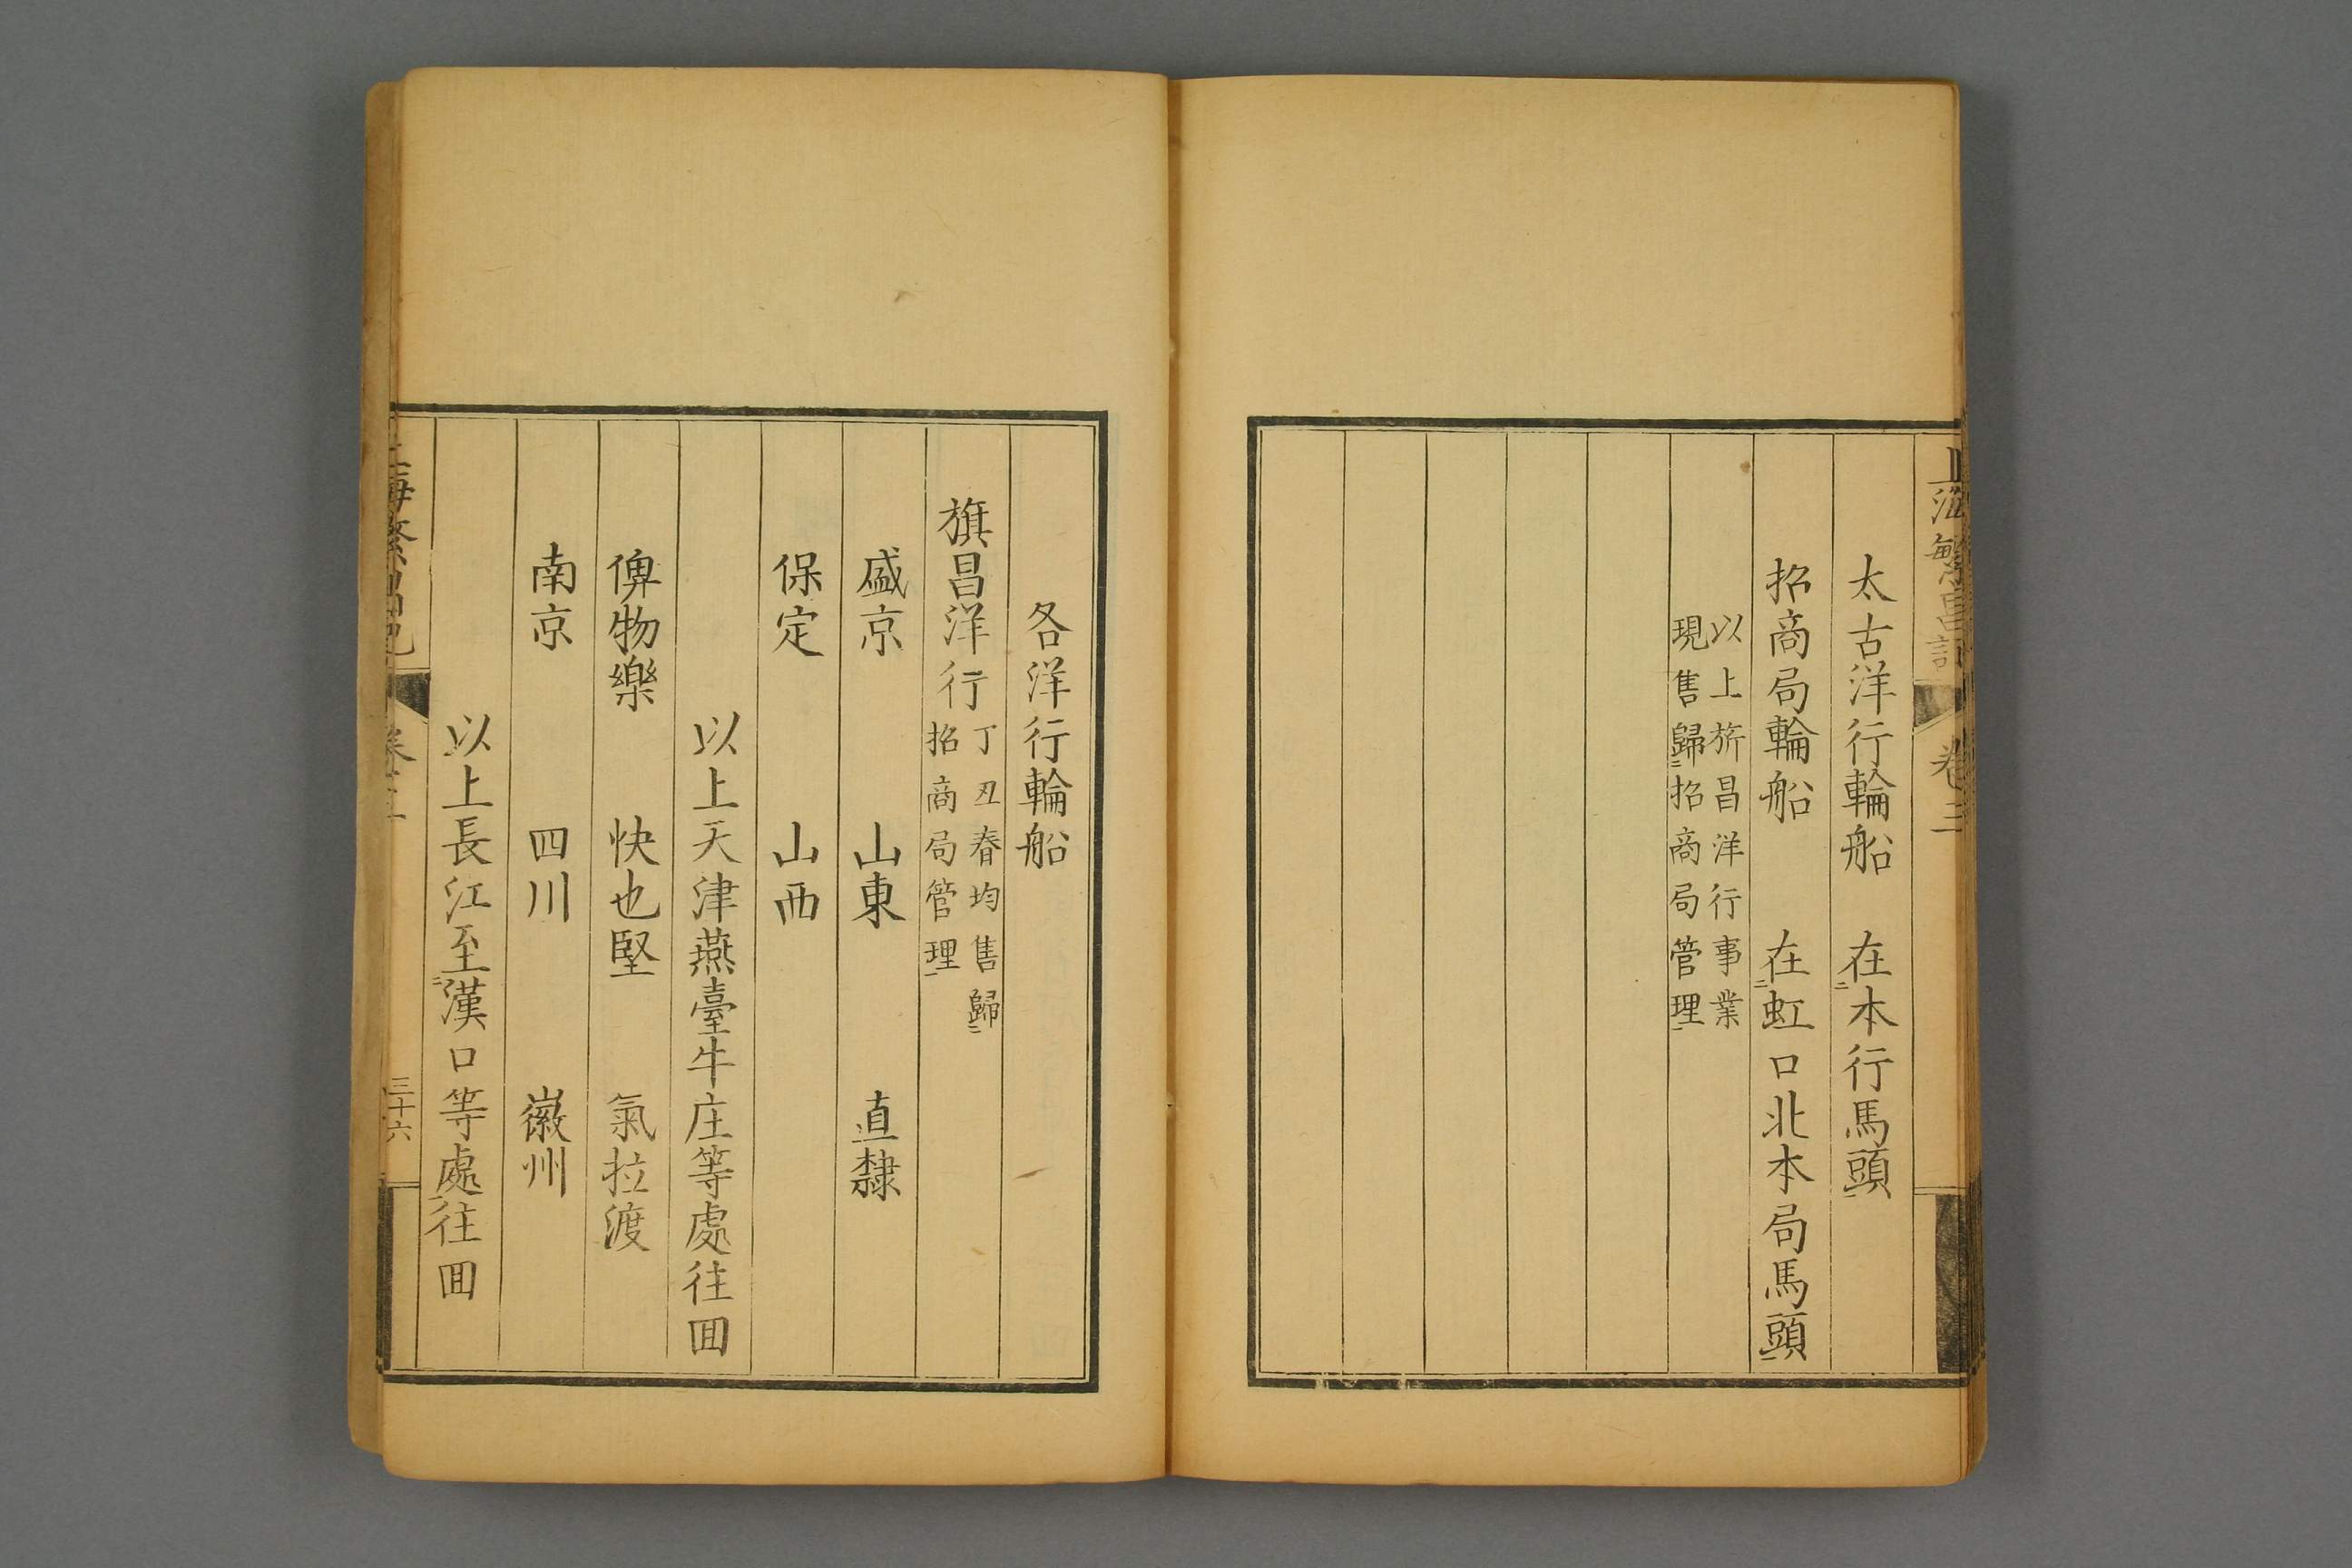 上海繁昌記 卷三
太古洋行輪船 在二本行馬頭一
招商局輪船 在二虹口北本局馬頭一
以上旂昌洋行事業
現售歸二招商局管理一
各洋行輪船
旗昌洋行 丁丑春均售歸二
招商局管理一
盛京 山東 直隸
保定 山西
以上天津燕臺牛庄等處往囬
俾物樂 快也堅 氣拉渡
南京 四川 徽州
以上長江至二漢口等處一往囬
上海繁昌記 卷三 三十六